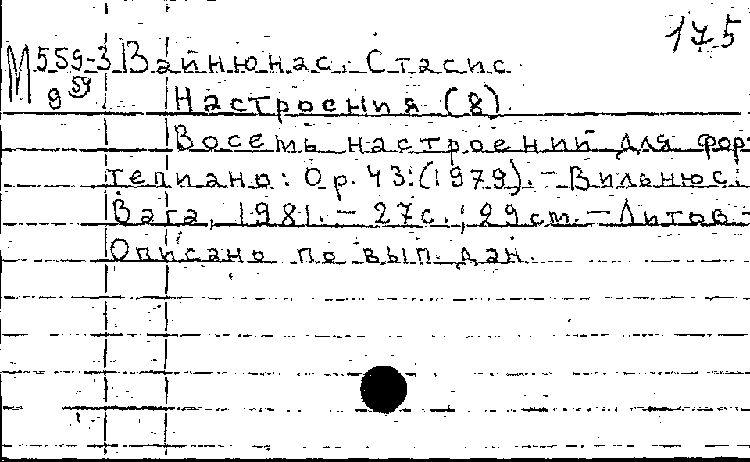 175
М 559-3 Вайнюнас, Стасис
9
Настроения (8).
Восемь настроений для фор-
тепиано: Op. 43:(1979). - Вильнюс:
Вага, 1981. - 27с.; 29cm. - Литов-
Описано по вып. дан.